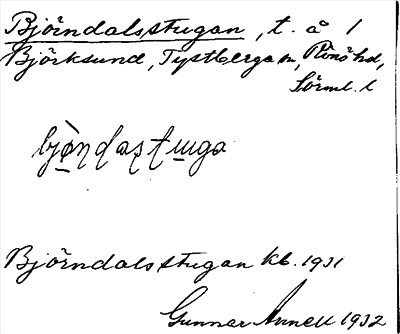 Björndalsstugan, t. å 1
Björksund, Tystberga sn, Rönö hd,
Sörml. l
Björndalsstugan kb. 1931
Gunnar Annell 1932